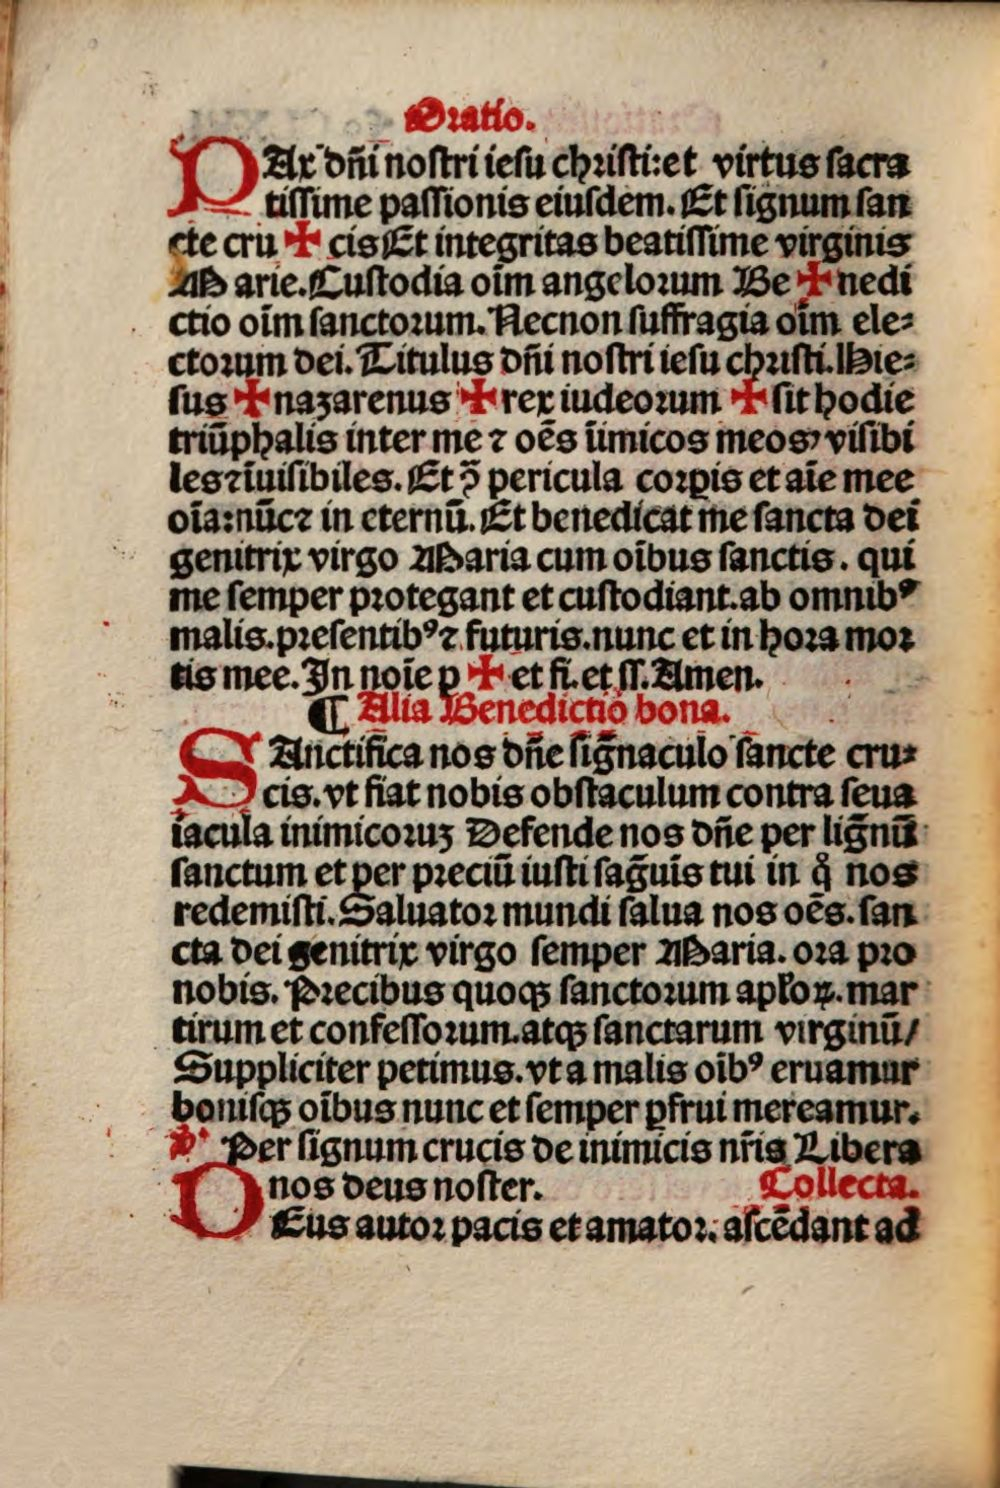 Oratio.
PAx dñi nostri iesu christi:et virtus sacra
tissime passionis eiusdem. Et signum san
cte cru ✠ cis Et integritas beatissime virginis
Marie. Custodia oīm angelorum Be ✠ nedi
ctio oīm sanctorum. Necnon suffragia oīm ele⸗
ctorum dei. Titulus dñi nostri iesu christi. Ihie⸗
sus ✠ nazarenus ✠ rex iudeorum ✠ sit hodie
triūphalis inter me ⁊ oēs iīmicos meos, visibi
les ⁊ īuisibiles. Et ꝯ̄ pericula corꝑis et aīe mee
oīa:nūc ⁊ in eternū. Et benedicat me sancta dei
genitrix virgo Maria cum oībus sanctis. qui
me semper protegant et custodiant.ab omnibꝰ
malis.presentibꝰ ⁊ futuris.nunc et in hora mor
tis mee. In noīe p ✠ et fi. et ss. Amen.
¶ Alia Benedictio bona.
SAnctifica nos dñe sig̃naculo sancte cru⸗
cis. vt fiat nobis obstaculum contra seua
iacula inimicoruꝫ Defende nos dñe per lig̃nū
sanctum et per preciū iusti sag̃uīs tui in q̊ nos
redemisti. Saluator mundi salua nos oēs. san
cta dei genitrix virgo semper Maria. ora pro
nobis. Precibus quoqꝫ sanctorum apl'oꝝ. mar
tirum et confessorum.atqꝫ sanctarum virginū/
Suppliciter petimus. vt a malis oībꝰ eruamur
bonisqꝫ oībus nunc et semper ꝑfrui mereamur.
℣. Per signum crucis de inimicis nr̃is Libera
nos deus noster. Collecta.
DEus autor pacis et amator. ascēdant ad